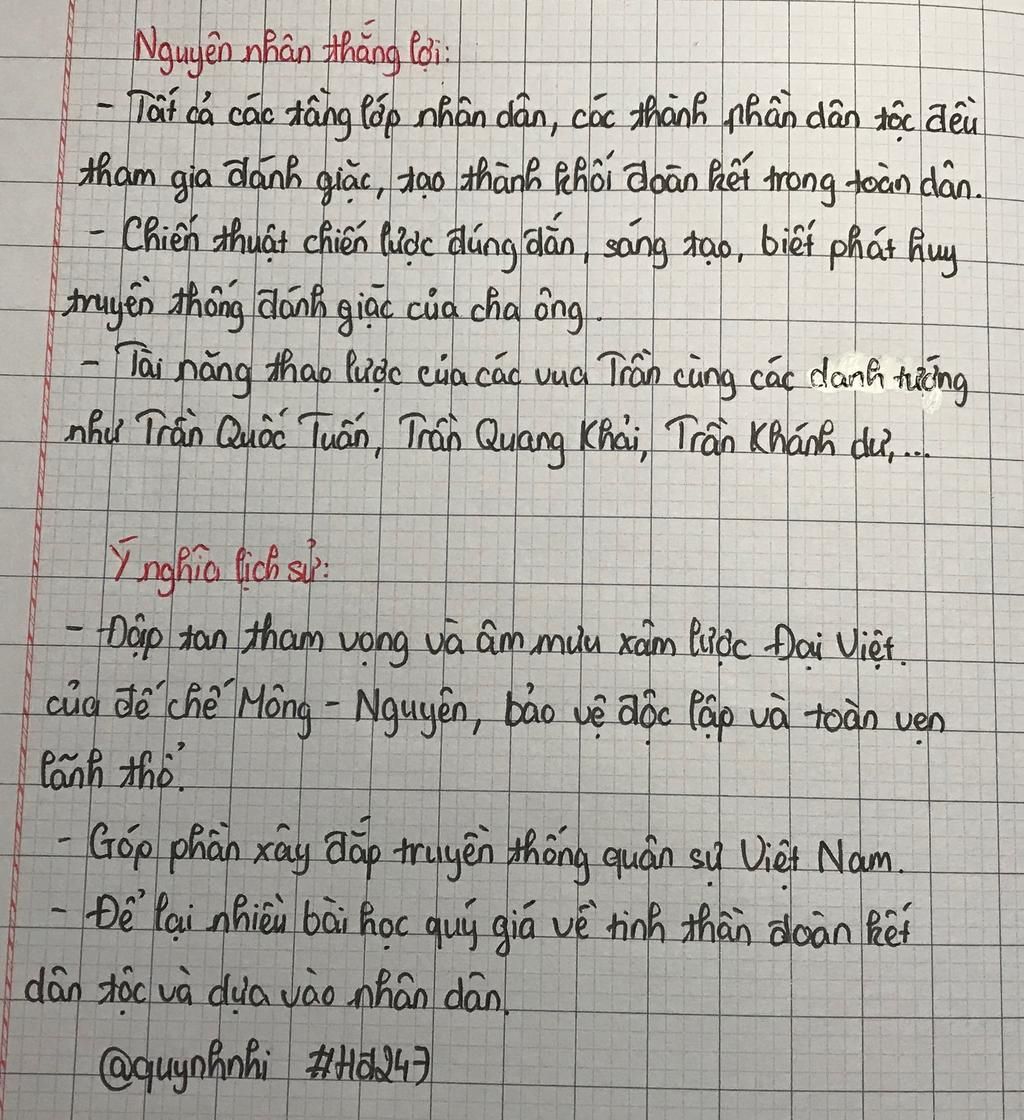 Nguyên nhân thắng lợi:
- Tất cả các tầng lớp nhân dân, các thành phần dân tộc đều
tham gia đánh giặc, tạo thành khối đoàn kết trong toàn dân.
- Chiến thuật chiến lược đúng đắn, sáng tạo, biết phát huy
truyền thống đánh giặc của cha ông.
- Tài năng thao lược của các vua Trần cùng các danh tướng
như Trần Quốc Tuấn, Trần Quang Khải, Trần Khánh dư,...
Ý nghĩa lịch sử:
- Đập tan tham vọng và âm mưu xâm lược Đại Việt.
của đế chế Mông - Nguyên, bảo vệ độc lập và toàn vẹn
lãnh thổ.
- Góp phần xây đắp truyền thống quân sự Việt Nam.
- Để lại nhiều bài học quý giá về tinh thần đoàn kết
dân tộc và dựa vào nhân dân.
@quynhnhi #Hd247